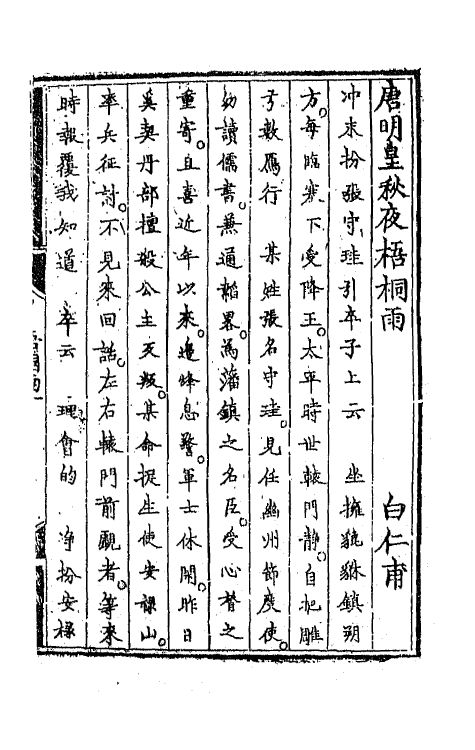 唐明皇秋夜梧桐雨
白仁甫
冲末扮張守珪引卒子上云 坐擁貔貅鎮朔
方。每臨寒下受降王。太平時世轅門靜。自把雕
弓數鴈行 某姓張名守珪。見任幽州節度使。
幼讀儒書。兼通韜畧。為藩鎮之名臣。受心膂之
重寄。且喜近年以來。邊烽息警。軍士休閑。昨日
奚契丹部擅殺公主反叛。某命捉生使安祿山。
率兵征討。不見來回話。左右轅門前覷者。等來
時報覆我知道 卒云 理會的 淨扮安祿